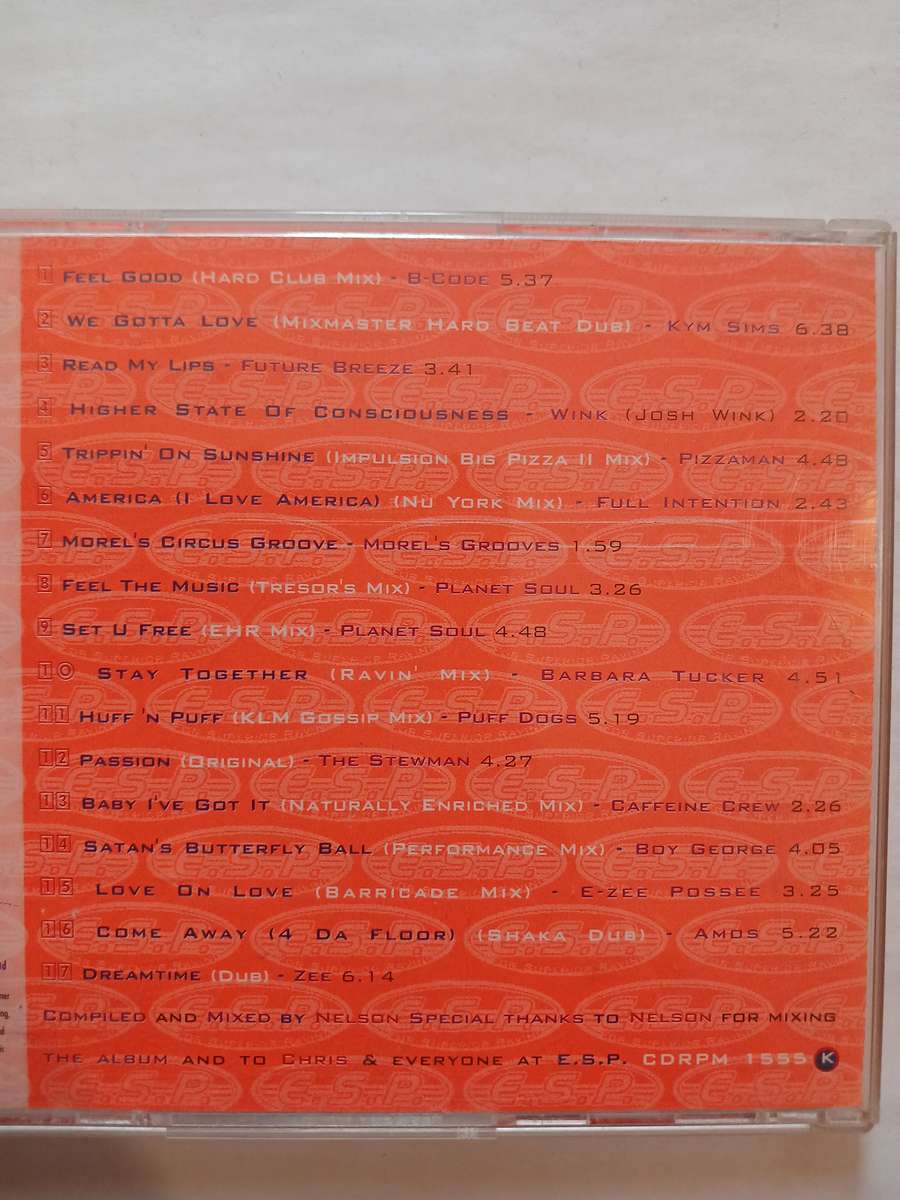 1 Feel Good (Hard Club Mix) - B-Code 5.37
2 We Gotta Love (Mixmaster Hard Beat Dub) - Kym Sims 6.38
3 Read My Lips - Future Breeze 3.41
4 Higher State Of Consciousness - Wink (Josh Wink) 2.20
5 Trippin' On Sunshine (Impulsion Big Pizza II Mix) - Pizzaman 4.48
6 America (I Love America) (Nu York Mix) - Full Intention 2.43
7 Morel's Circus Groove - Morel's Grooves 1.59
8 Feel The Music (Tresor's Mix) - Planet Soul 3.26
9 Set U Free (EHR Mix) - Planet Soul 4.48
10 Stay Together (Ravin' Mix) - Barbara Tucker 4.51
11 Huff 'n Puff (KLM Gossip Mix) - Puff Dogs 5.19
12 Passion (Original) - The Stewman 4.27
13 Baby I've Got It (Naturally Enriched Mix) - Caffeine Crew 2.26
14 Satan's Butterfly Ball (Performance Mix) - Boy George 4.05
15 Love On Love (Barricade Mix) - E-zee Possee 3.25
16 Come Away (4 Da Floor) (Shaka Dub) - Amos 5.22
17 Dreamtime (Dub) - Zee 6.14
Compiled and Mixed by Nelson Special thanks to Nelson for mixing
the album and to Chris & everyone at E.S.P. CDRPM 1555 K